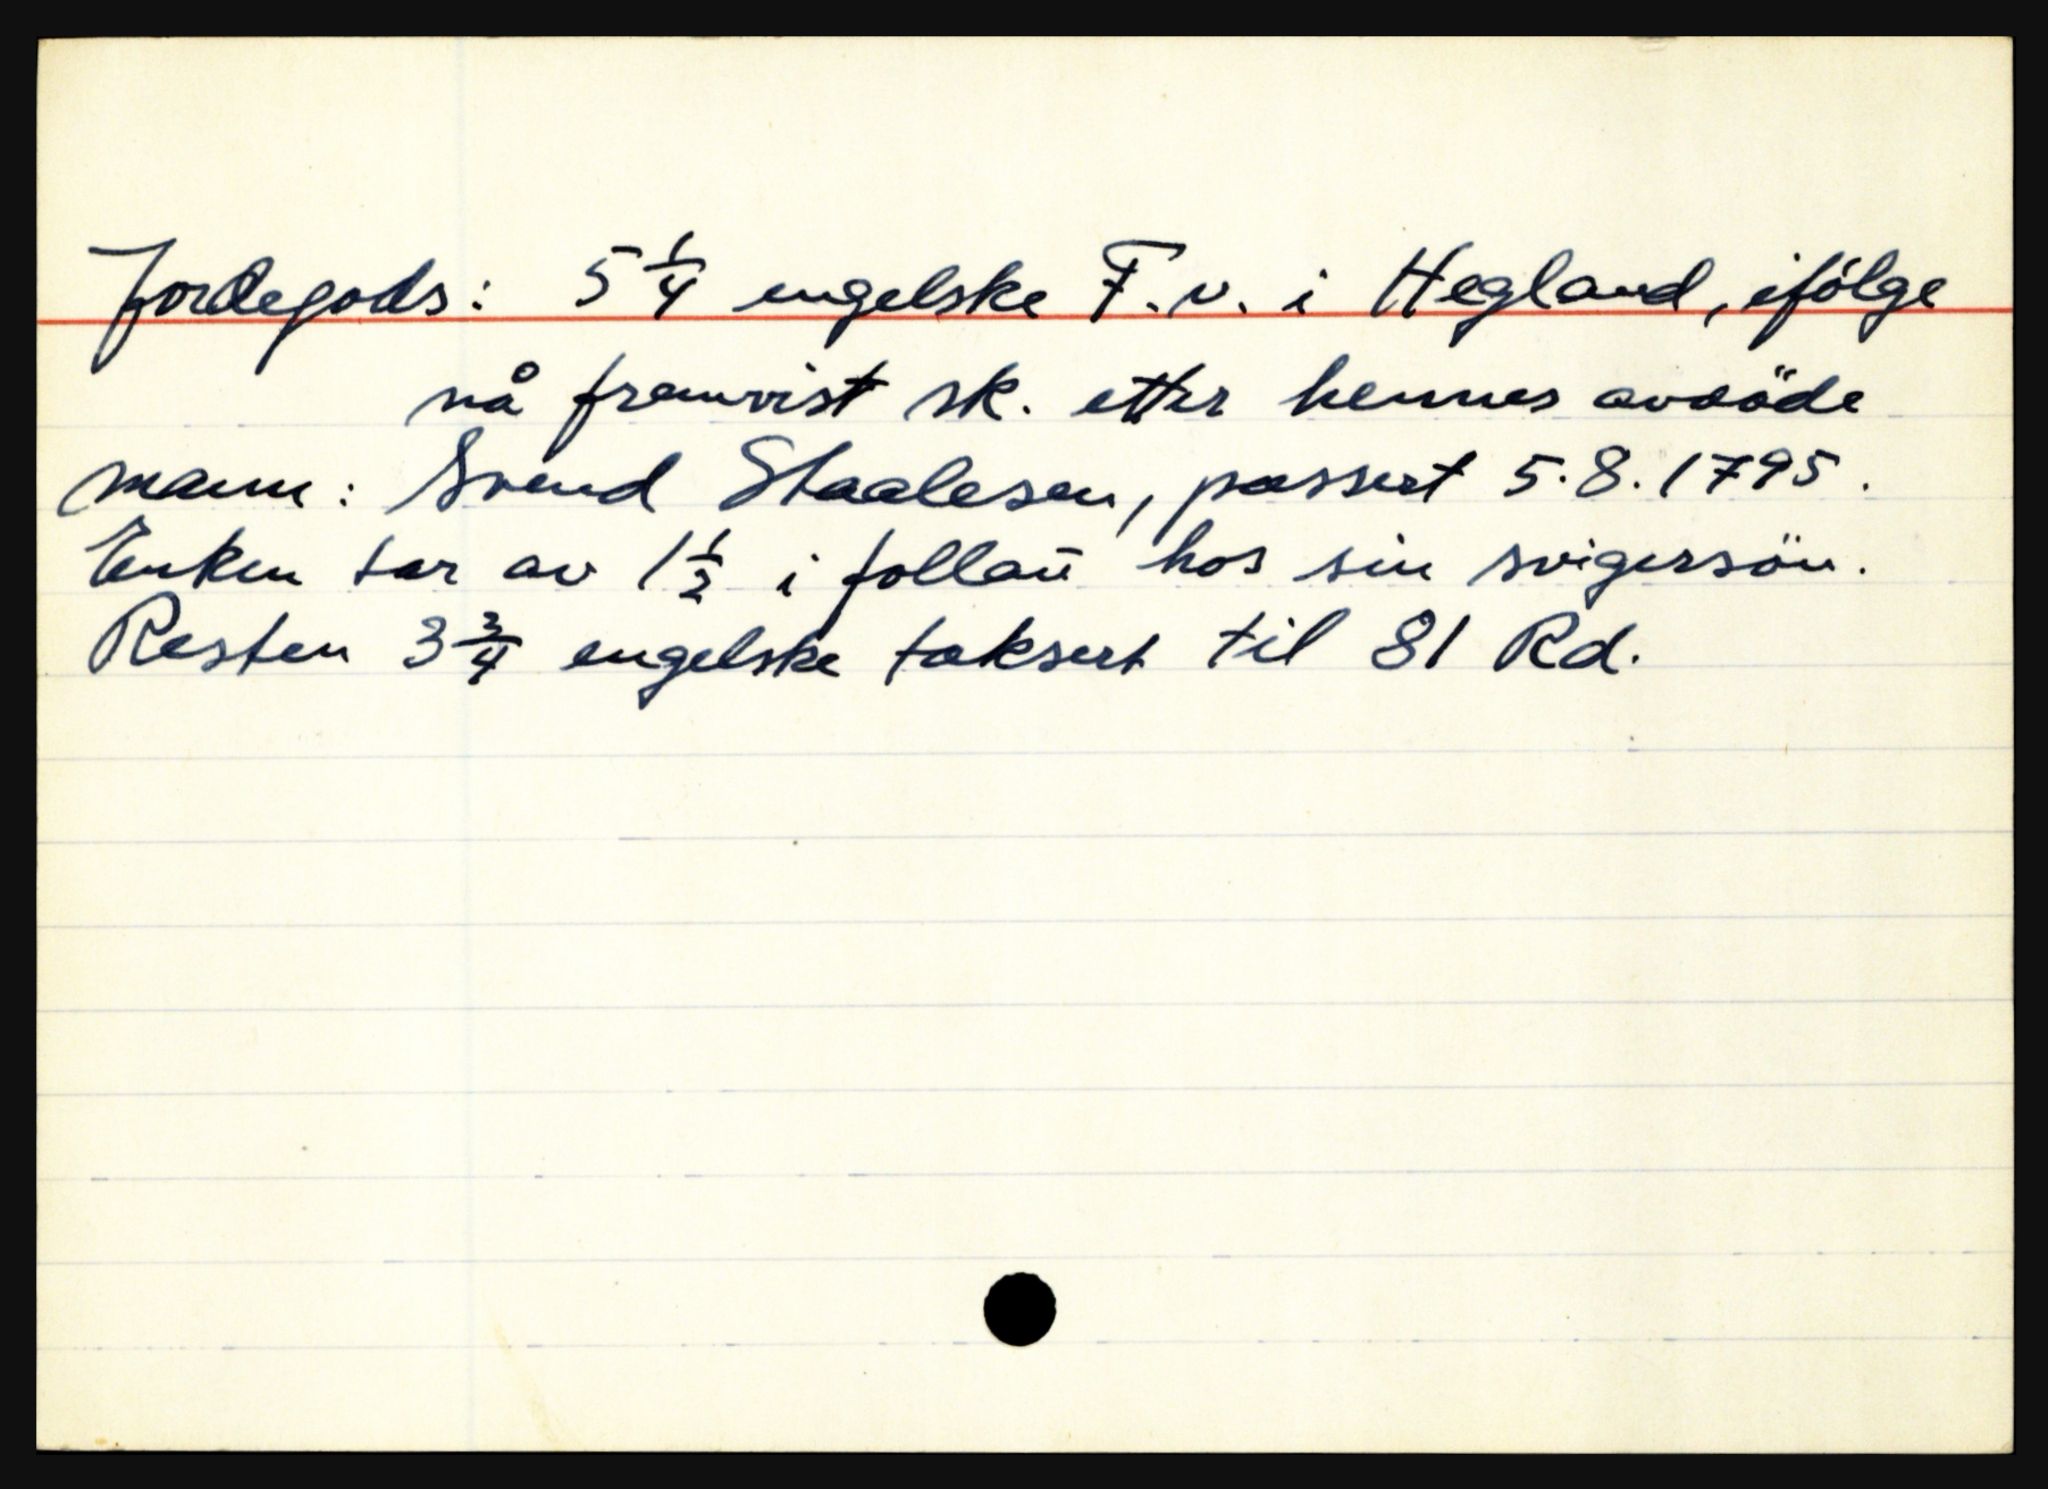 Jordegods: 5 1/4 engelske F.v. i Hegland, ifölge
nå framvist sk. etter hennes avdöde
mann: Svend Staalesen, passert 5.8.1795.
Enken tar av 1 1/2 i follaū hos sin svigersön.
Resten 3 3/4 engelske taksert til 81 Rd.